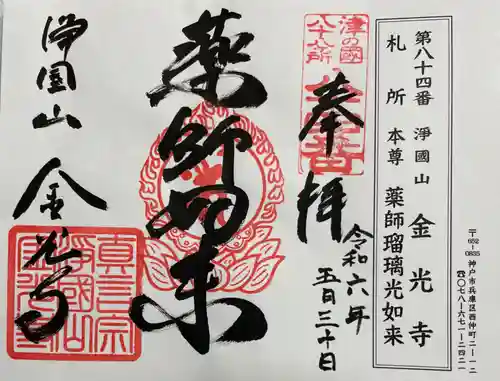 〒652-0835 神戸市兵庫区西仲町二-一二
☎〇七八-六七一-二四二一
第八十四番 淨國山 金光寺
札所本尊 薬師瑠璃光如来
津の國
八十八所
奉拝
令和六年
五月三十日
薬師如来
淨國山
金光寺
真言宗
淨國山
金光寺